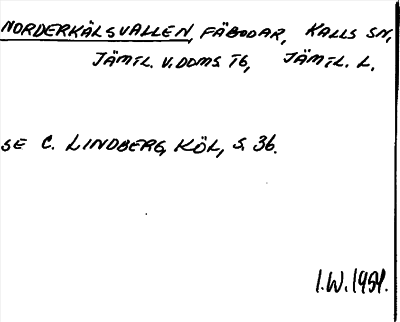 NORDERKÄLSVALLEN, FÄBODAR, KALLS SN,
JÄMTL. V. DOMS TG, JÄMTL. L.
SE C. LINDBERG, KÖL, S. 36.
I.W. 1951.